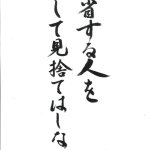 省する人を
して見捨てはしな